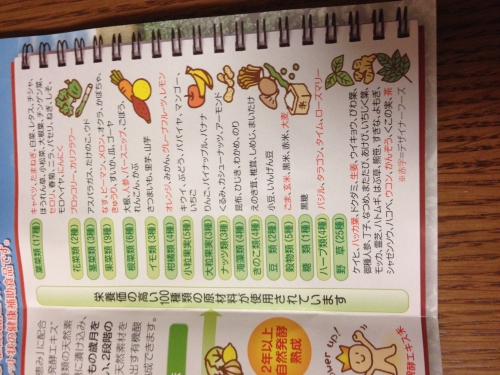 栄養価の高い100種類の原材料が使用されています
葉菜類(17種)
キャベツ、たまねぎ、白菜、レタス、チシャ、
ほうれん草、小松菜、大根葉、チンゲン菜、
セロリ、春菊、ニラ、パセリ、ねぎ、しそ、
モロヘイヤ、にんにく
花菜類(2種)
ブロッコリー、カリフラワー
茎菜類(3種)
アスパラガス、たけのこ、ウド
果菜類(9種)
なす、ピーマン、メロン、オクラ、かぼちゃ、
きゅうり、すいか、トマト、ゴーヤ
根菜類(6種)
大根、人参、ごぼう、
れんこん、かぶ
イモ類(3種)
さつまいも、里芋、山芋
柑橘類(4種)
オレンジ、みかん、グレープフルーツ、レモン
小粒果実(5種)
キウイ、ぶどう、パパイヤ、マンゴー、
いちご
大粒果実(3種)
りんご、パイナップル、バナナ
ナッツ類(3種)
くるみ、カシューナッツ、アーモンド
海藻類(4種)
昆布、ひじき、わかめ、のり
きのこ類(4種)
えのき茸、椎茸、しめじ、まいたけ
豆類(2種)
小豆、いんげん豆
穀物類(5種)
ごま、玄米、黒米、赤米、大麦
糖類(1種)
黒糖
ハーブ類(4種)
バジル、タラゴン、タイム、ローズマリー
野草(25種)
ケイヒ、ハッカ葉、ドクダミ、生姜、ウイキョウ、びわ葉、
御種人参、丁子、なつめ、またたび、あけび、いちじく葉、
モッカ、霊芝、ハトムギ、はぶ草、熊笹、すぎな、よもぎ、
シャゼンソウ、ハコベ、ウコン、かんぞう、くこの実、茶
※赤字=デザイナーフーズ
2年以上
自然発酵
熟成